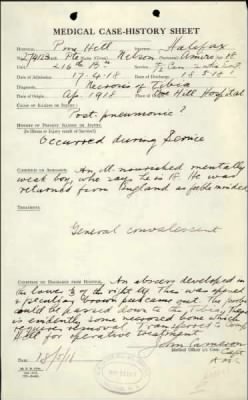 MEDICAL CASE-HISTORY SHEET
Hospital Pine Hill Station Halifax
Pte Nelson
Unit
Date of Admission 17-4-18 Date of Discharge 18-5-18
Diagnosis Necrosis of Tibia
Date of Origin Ap. 1918 Place of Origin Hill Hospital
CAUSE OF ILLNESS OR INJURY:
Post-pneumonic?
HISTORY OF PRESENT ILLNESS OR INJURY:
(Is illness or injury result of Service?)
Occurred during Service
CONDITION ON ADMISSION: An ill nourished mentally
weak boy, who says he is 18. He was
returned from England as feeble minded
TREATMENT:
General convalescent
CONDITION ON DISCHARGE FROM HOSPITAL: An abscess developed in
the lower 3rd of right leg. This was opened
& peculiar brown pus came out. The probe
could be passed down to the tibia, there
is evidently some necrosed bone which
requires removal. Transferred to Camp
Hill for operative treatment.
John Cameron
Medical Officer i/c Case. Capt
Date 18/5/18